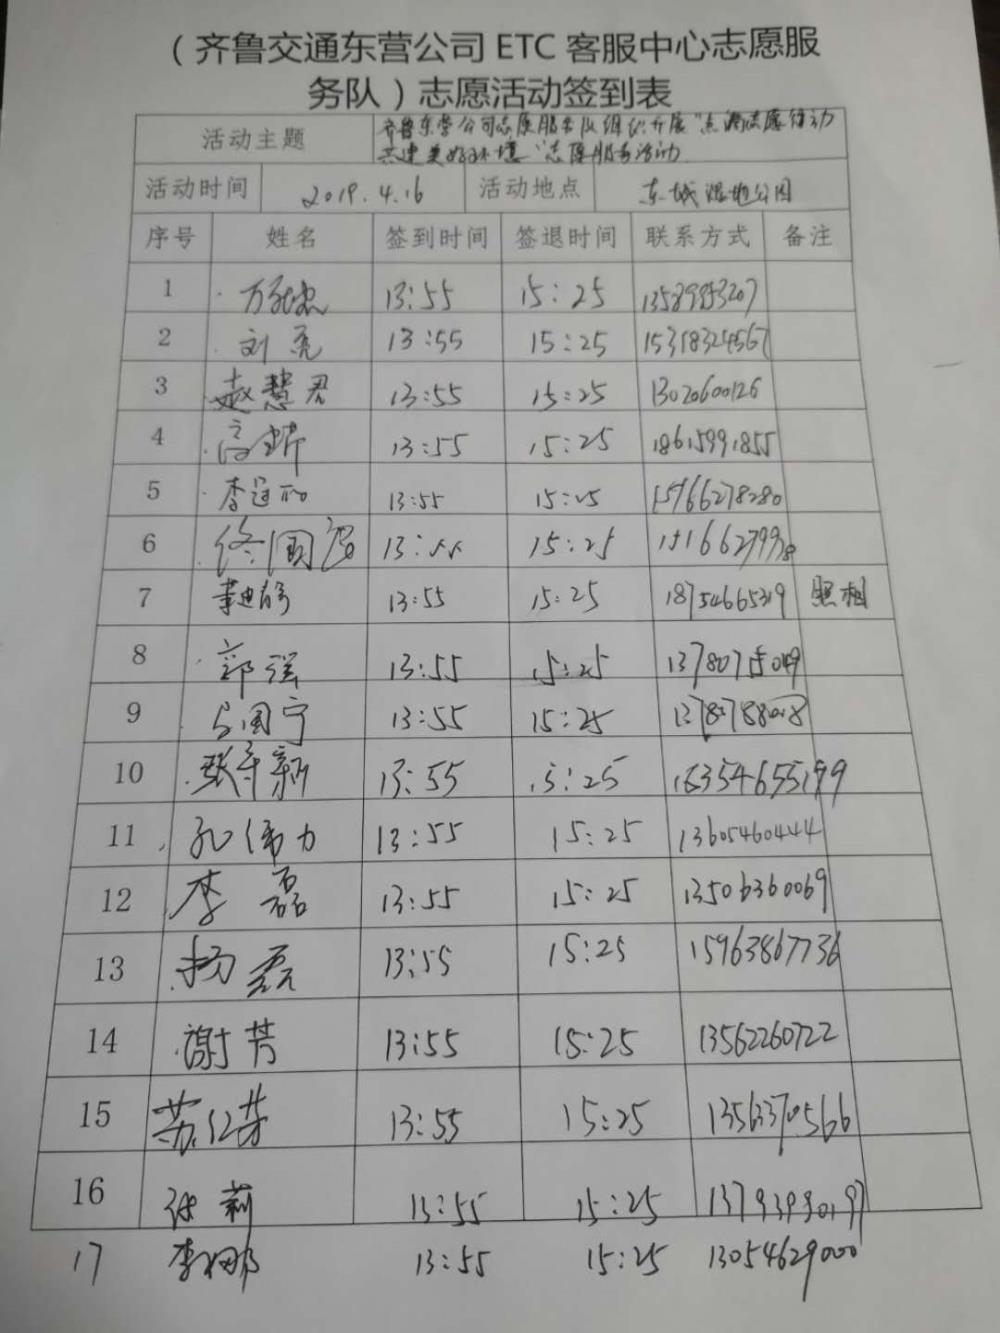 （齐鲁交通东营公司 ETC 客服中心志愿服
务队）志愿活动签到表
活动主题 齐鲁东营公司志愿服务队组织开展“点滴志愿行动
共建美好环境”志愿服务活动
活动时间 2019.4.16 活动地点 东城湿地公园
序号 姓名 签到时间 签退时间 联系方式 备注
1 13:55 15:25 13589953207
2 刘亮 13:55 15:25 15318324567
3 赵慧君 13:55 15:25 13020600126
4 13:55 15:25 18615991855
5 13:55 15:25 15966278280
6 佟国 13:55 15:25
7 13:55 15:25 18754665319 照相
8 郭强 13:55 15:25
9 国宁 13:55 15:25
10 张新 13:55 15:25
11 孔伟力 13:55 15:25 13605460444
12 李磊 13:55 15:25 13506360069
13 杨磊 13:55 15:25 15963867736
14 谢芳 13:55 15:25 13562260722
15 苏红芳 13:55 15:25 13563370566
16 张莉 13:55 15:25 13793980197
17 李娜 13:55 15:25 13054629000